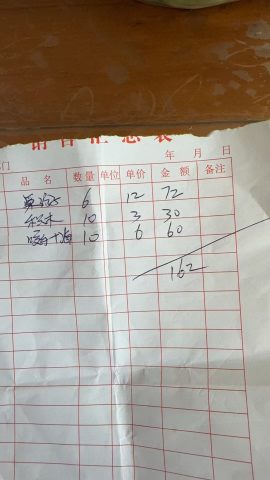 销售汇总表
部门 年 月 日
品名 数量 单位 单价 金额 备注
6 12 72
积木 10 3 30
10 6 60
162